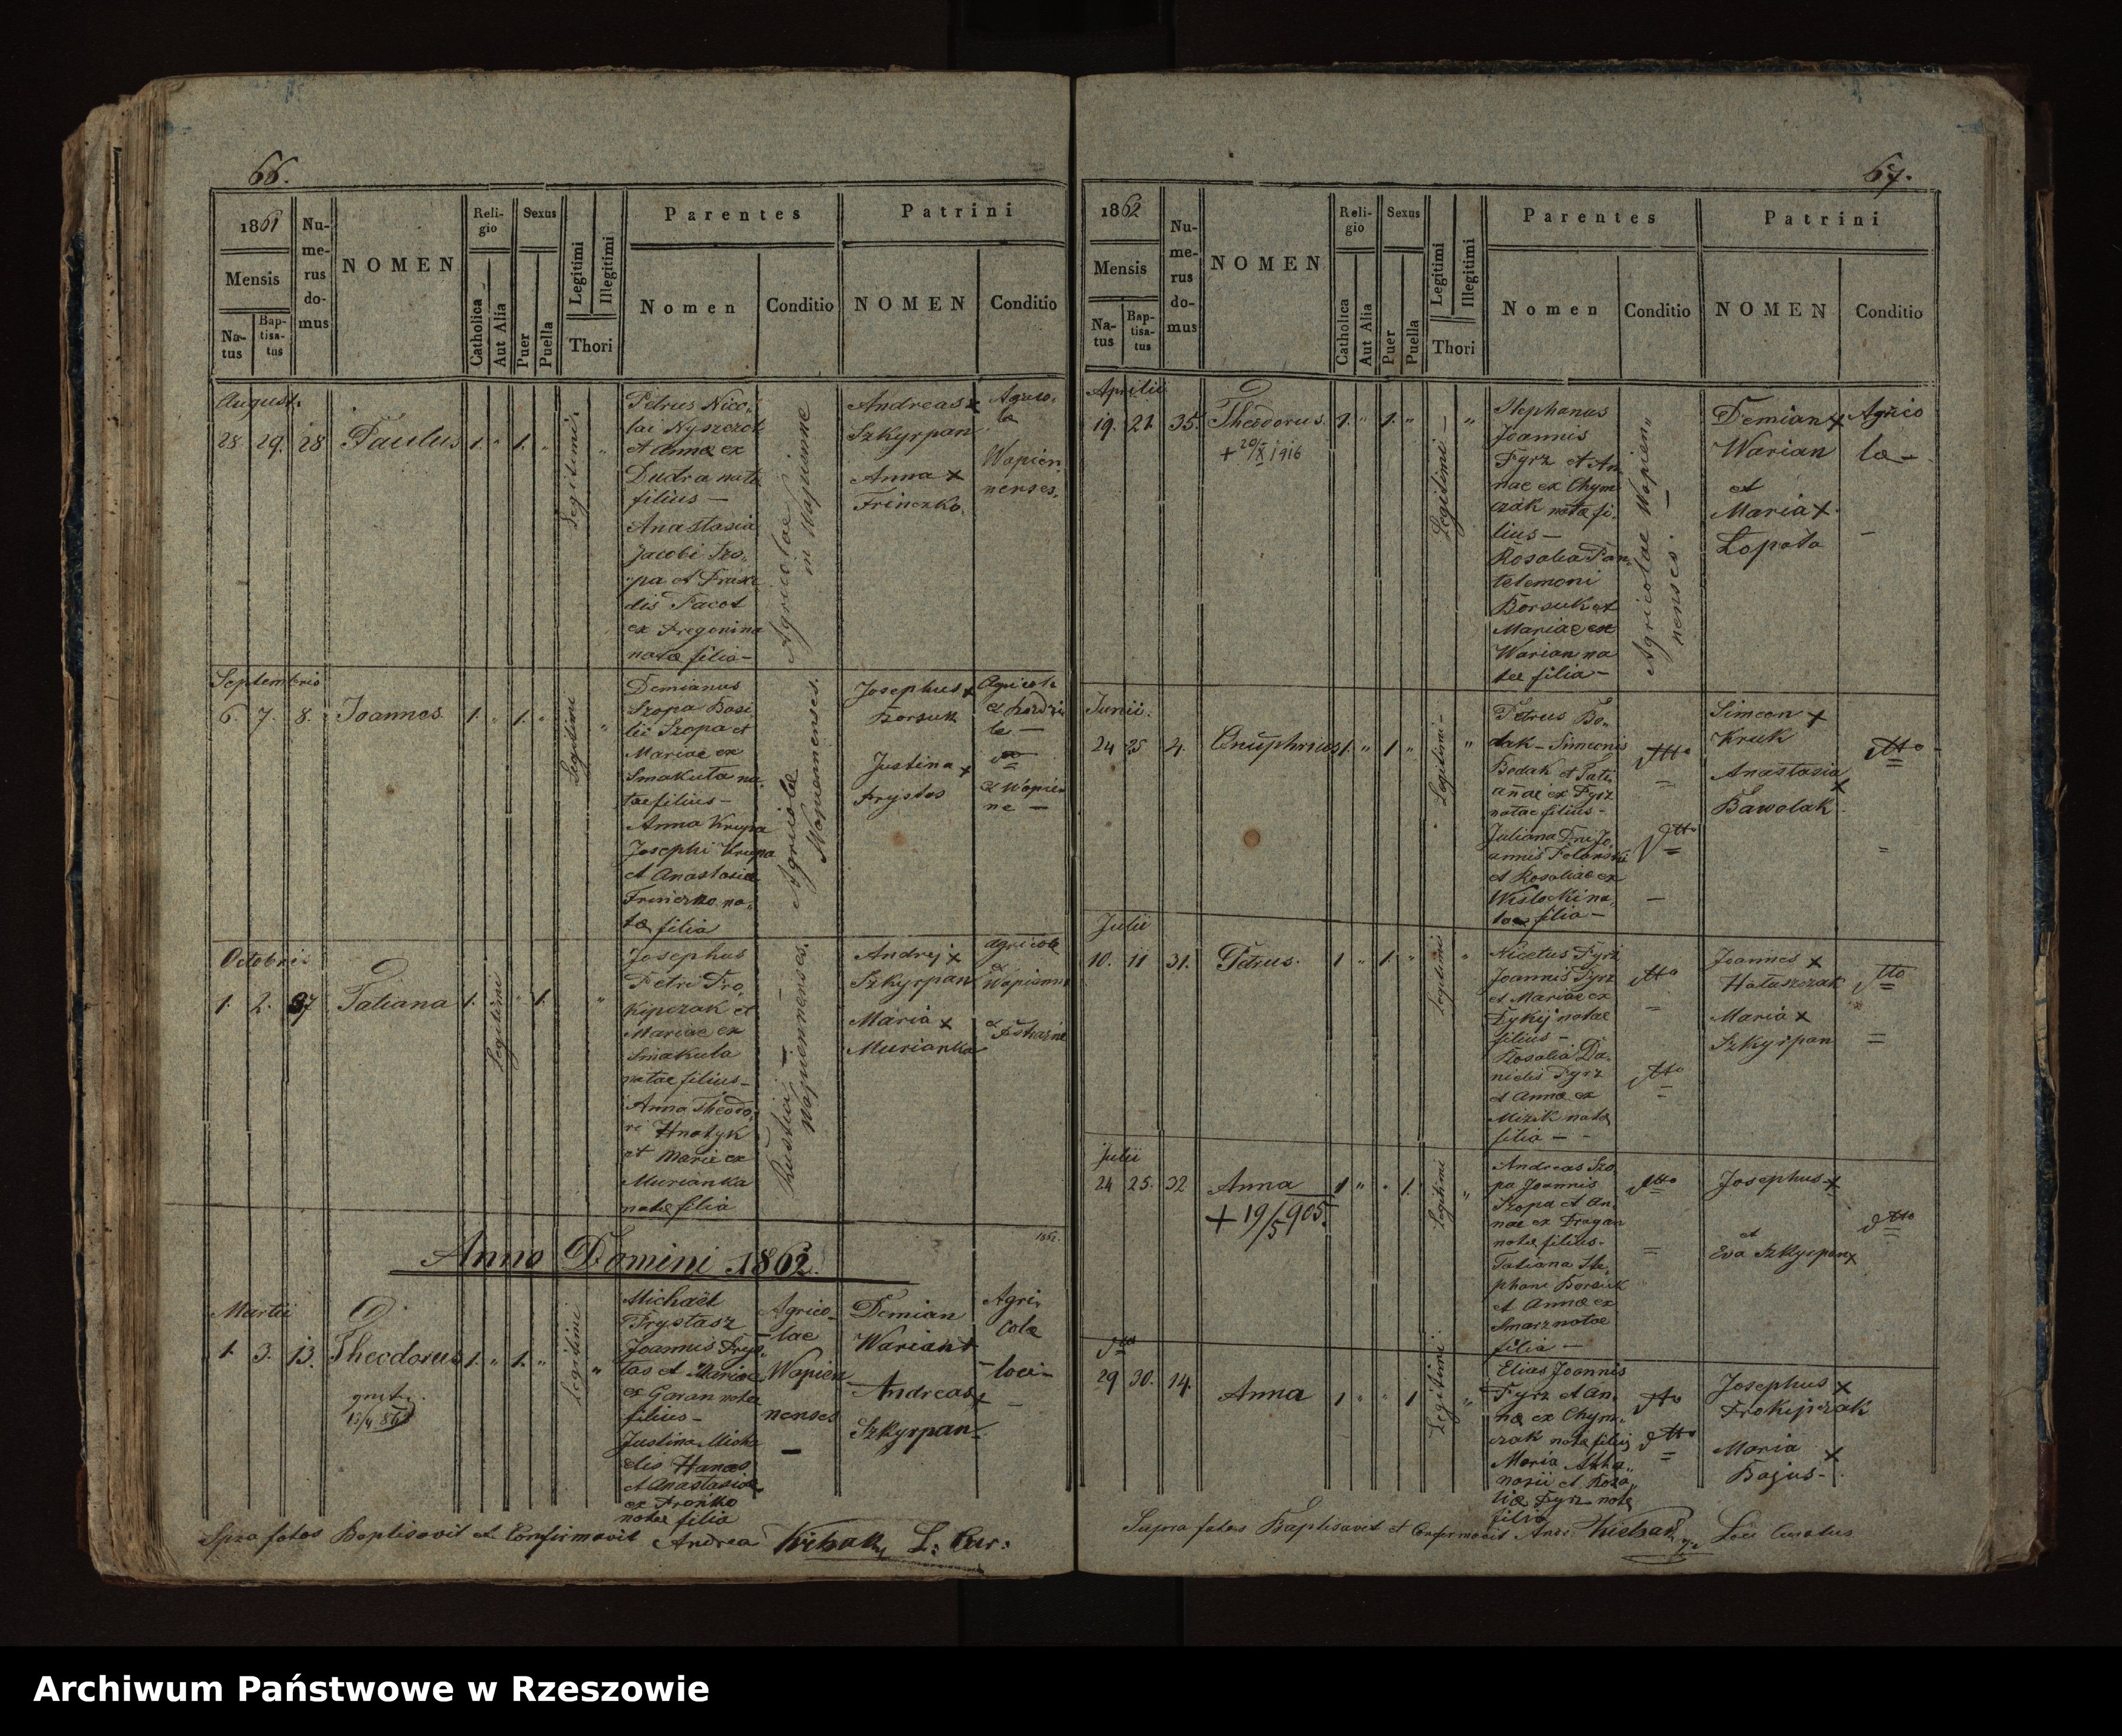 66.
1861
Mensis
Na-
tus
Bap-
tisa-
tus
Nu-
me-
rus
do-
mus
NOMEN
Reli-
gio
Catholica
Aut Alia
Sexus
Puer
Puella
Legitimi
Illegitimi
Thori
Parentes
Nomen
Conditio
Patrini
NOMEN
Conditio
August.
28 29. 28 Paulus 1. " 1. "
Legitimi.
Petrus Nico-
lai Nyszczot
et Annae ex
Dudra nata
filius —
Anastasia
Jacobi Szo-
pa et Praxe
dis Pacot
ex Pregonina
nata filia —
Agricolae
in Wapienne
Andreas x
Szkyrpan
Anna x
Frinczko.
Agrico-
la
Wapien
nenses.
Septembris
6. 7. 8. Joannes 1. " 1. "
Legitimi
Demianus
Szopa Basi
lii Szopa et
Mariae ex
Smakuta na-
tae filius —
Anna Krupa
Josephi Krupa
et Anastasiae
Frinczko na-
tae filia
Agricolae
Wapiennenses.
Josephus x
Borsuk
Justina x
Frystas
Agricola
et Wapien
ne —
Octobris
1. 2. 37 Tatiana 1. " 1.
Legitimi
Josephus
Petri Pro-
kipczak et
Mariae ex
Smakuta
natae filius —
Anna Theodo-
ri Hnatyk
et Marie ex
Murianka
natae filia
Rustici
Wapiennenses.
Andrej x
Szkyrpan
Maria x
Murianka
Agricola
Anno Domini 1862.
Martii
1. 3. 13. Theodorus 1. " 1. "
Legitimi
Michaël
Frystasz
Joannis Frys-
tas et Mariae
ex Garan natae
filius —
Justina Micha
elis Hanas
et Anastasiae
ex Fronko
natae filia
Agrico-
lae
Wapien
nenses
—
Demian
Warian x
Andreas x
Szkyrpan
Agri-
cola
— loci —
Supra fatos Baptisavit et Confirmavit Andrea L: Cur:
67.
1862
Mensis
Na-
tus
Bap-
tisa-
tus
Nu-
me-
rus
do-
mus
NOMEN
Reli-
gio
Catholica
Aut Alia
Sexus
Puer
Puella
Legitimi
Illegitimi
Thori
Parentes
Nomen
Conditio
Patrini
NOMEN
Conditio
Aprilii
19. 21. 35. Theodorus. 1. " 1. "
+ 20/X 1916
Legitimi —
Stephanus
Joannis
Fyrz et An
nae ex Chym
czak nata fi-
lius —
Rosalia Pan-
telemoni
Borsuk et
Mariae ex
Warian na
tae filia —
Agricolae Wapien„
nenses.
Demian x
Warian
et
Maria x
Lopata
Agrico
la —
Junii.
24 25 4. Onuphrius 1. " 1 "
Legitimi —
Petrus Bo-
dak — Simeonis
Bodak et Tati
anae ex Fyrz
natae filius —
Juliana
et Rosaliae ex
Wislocki na-
tae filia —
dtto
dtto
Simeon x
Kruk
Anastasia x
Bawolak
dtto
Julii
10. 11 31. Petrus. 1 " 1. "
Legitimi
Nicetus Fyrz
Joannis Fyrz
et Mariae ex
Dykij natae
filius —
Rosalia Da-
nielis Fyrz
et Annae ex
Mizik nata
filia —
dtto
dtto
Joannes x
Hatuszczak
Maria x
Szkyrpan
dtto
Julii
24 25. 32 Anna 1 " " 1.
+ 19/5 905.
Legitimi
Andreas Szo
pa Joannis
Szopa et An-
nae ex Dragan
nata filius —
Tatiana Ste-
phani Borsuk
et Annae ex
Smarz natae
filia —
dtto
Josephus x
et
Eva Szkyrpan x
dtto
dtto
29 30. 14. Anna 1 " " 1
Legitimi.
Elias Joannis
Fyrz et An-
nae ex Chym-
czak nata filius
Maria Atha„
nasii et Rosa„
liae Fyrz nata
filia
dtto
dtto
Josephus x
Prokipczak
Maria x
Bajus —
Supra fatos Baptisavit et Confirmavit Andr: Loci Curatus
Archiwum Państwowe w Rzeszowie